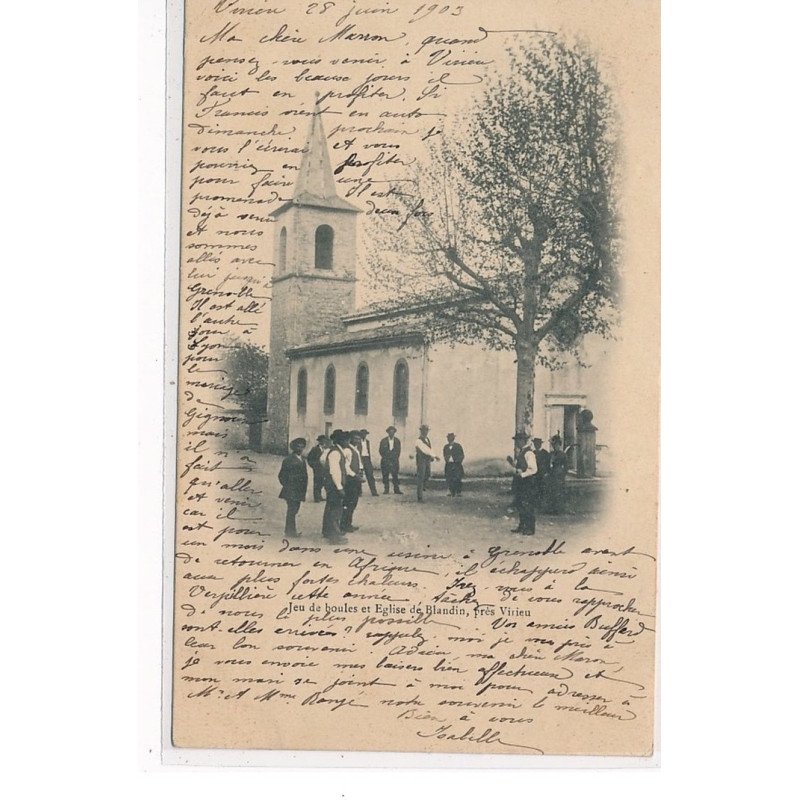 Virieu 28 juin 1903
Ma chère Marron, quand
pensez-vous venir à Virieu
voici les beause jours il
faut en profiter. Si
Francis vient en auto
dimanche prochain je
vous l'écrirai et vous
pourriez en profiter
pour faire une
promenade Il est
déjà venu deux fois
et nous
sommes
allés avec
lui jusqu'à
Grenoble
Il est allé
l'autre
jour à
Lyon
pour
le
mariage
de
mais
il n'a
fait
qu'aller
et venir
car il
est pour
un mois dans une usine à Grenoble avant
de retourner en Afrique, il échappera ainsi
aux plus fortes chaleurs. Irez vous à la
Verpillière cette année, tâchez de vous rapprocher
Jeu de boules et Eglise de Blandin, près Virieu
de nous le plus possible. Vos amies Buffard
sont-elles arrivées? rappelez moi je vous prie à
leur bon souvenir. Adieu ma chère Marron,
je vous envoie mes baisers bien affectueux et
mon mari se joint à moi pour adresser à
Mr. et Mme notre souvenir le meilleur
Bien à vous
Isabelle